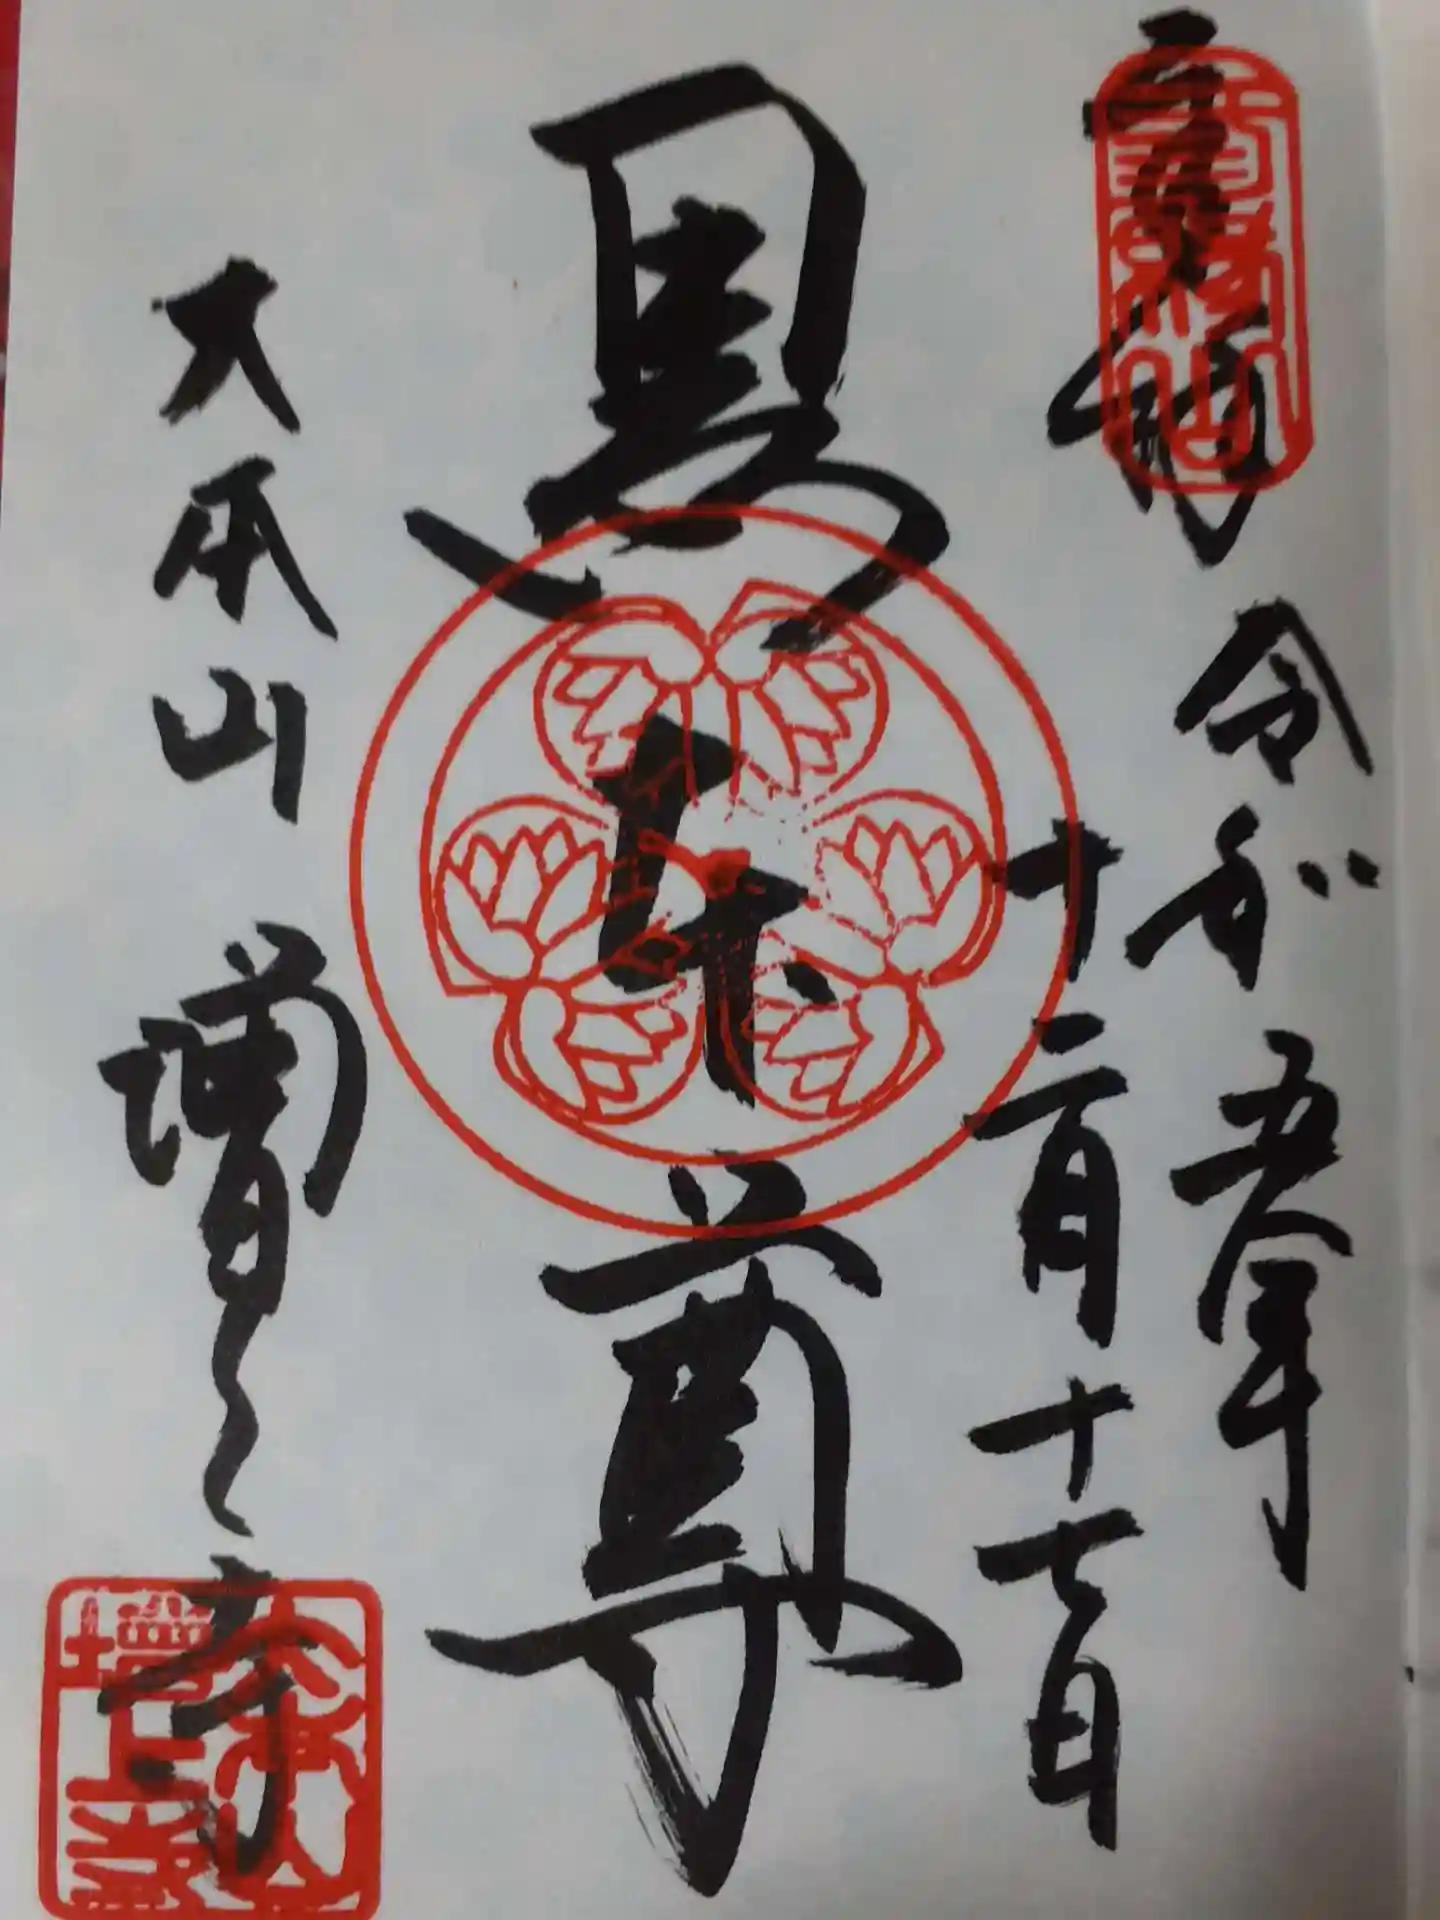 奉拝
令和五年
十二月十七日
黒本尊
大本山
増上寺
三縁山
大本山
増上寺